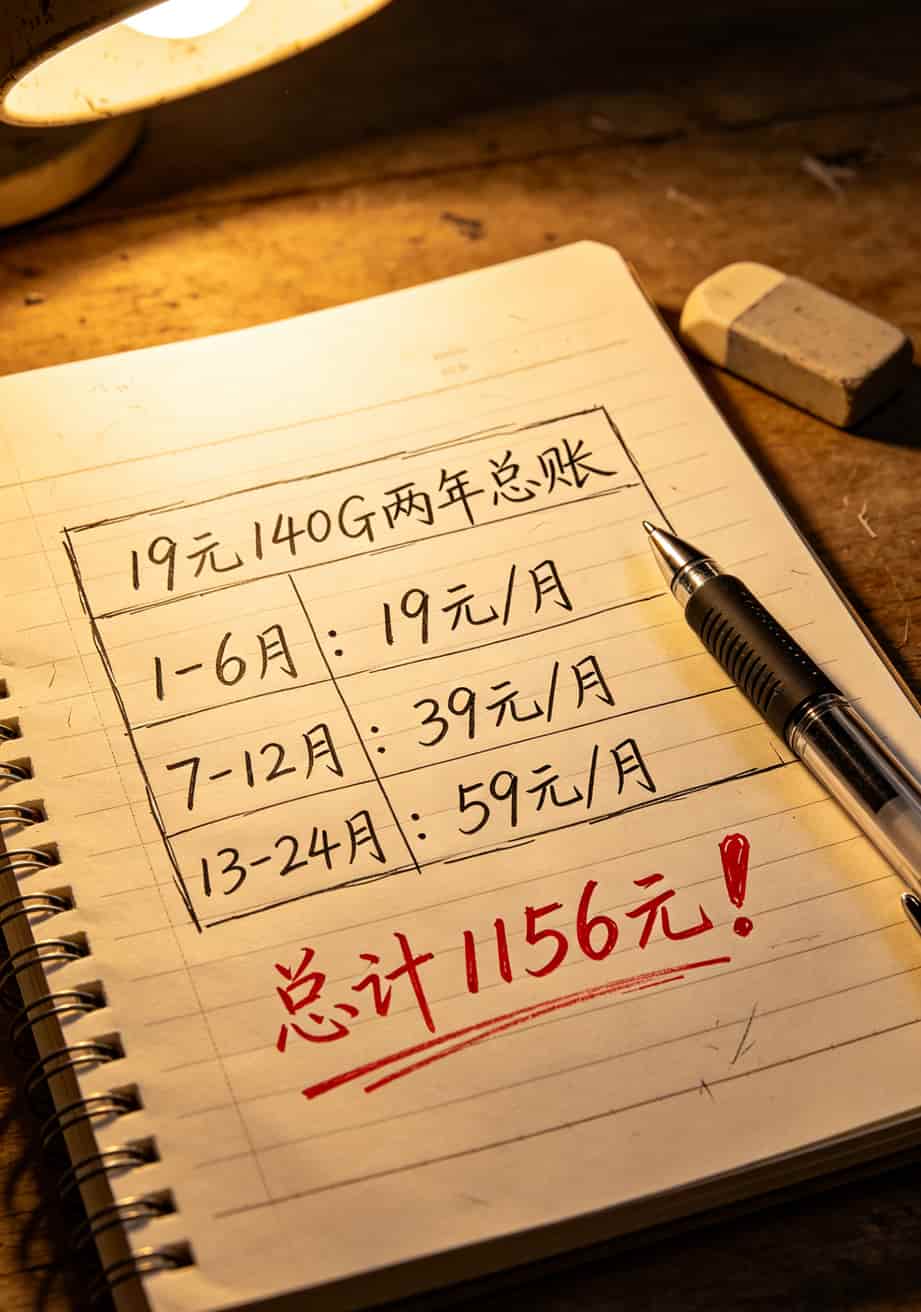 19元140G两年总账
1-6月：19元/月
7-12月：39元/月
13-24月：59元/月
总计1156元！